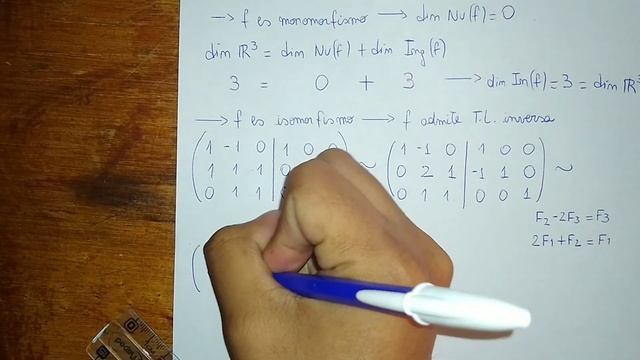 → f es monomorfismo → dim Nu(f) = 0
dim ℝ³ = dim Nu(f) + dim Img(f)
3 = 0 + 3 → dim Im(f) = 3 = dim ℝ³
→ f es isomorfismo → f admite T.L. inversa
( 1 -1 0 | 1 0 0 ) ~ ( 1 -1 0 | 1 0 0 ) ~
1 1 1 | 0 2 1 | -1 1 0
0 1 1 | 0 1 1 | 0 0 1
F₂ - 2F₃ = F₃
2F₁ + F₂ = F₁
(